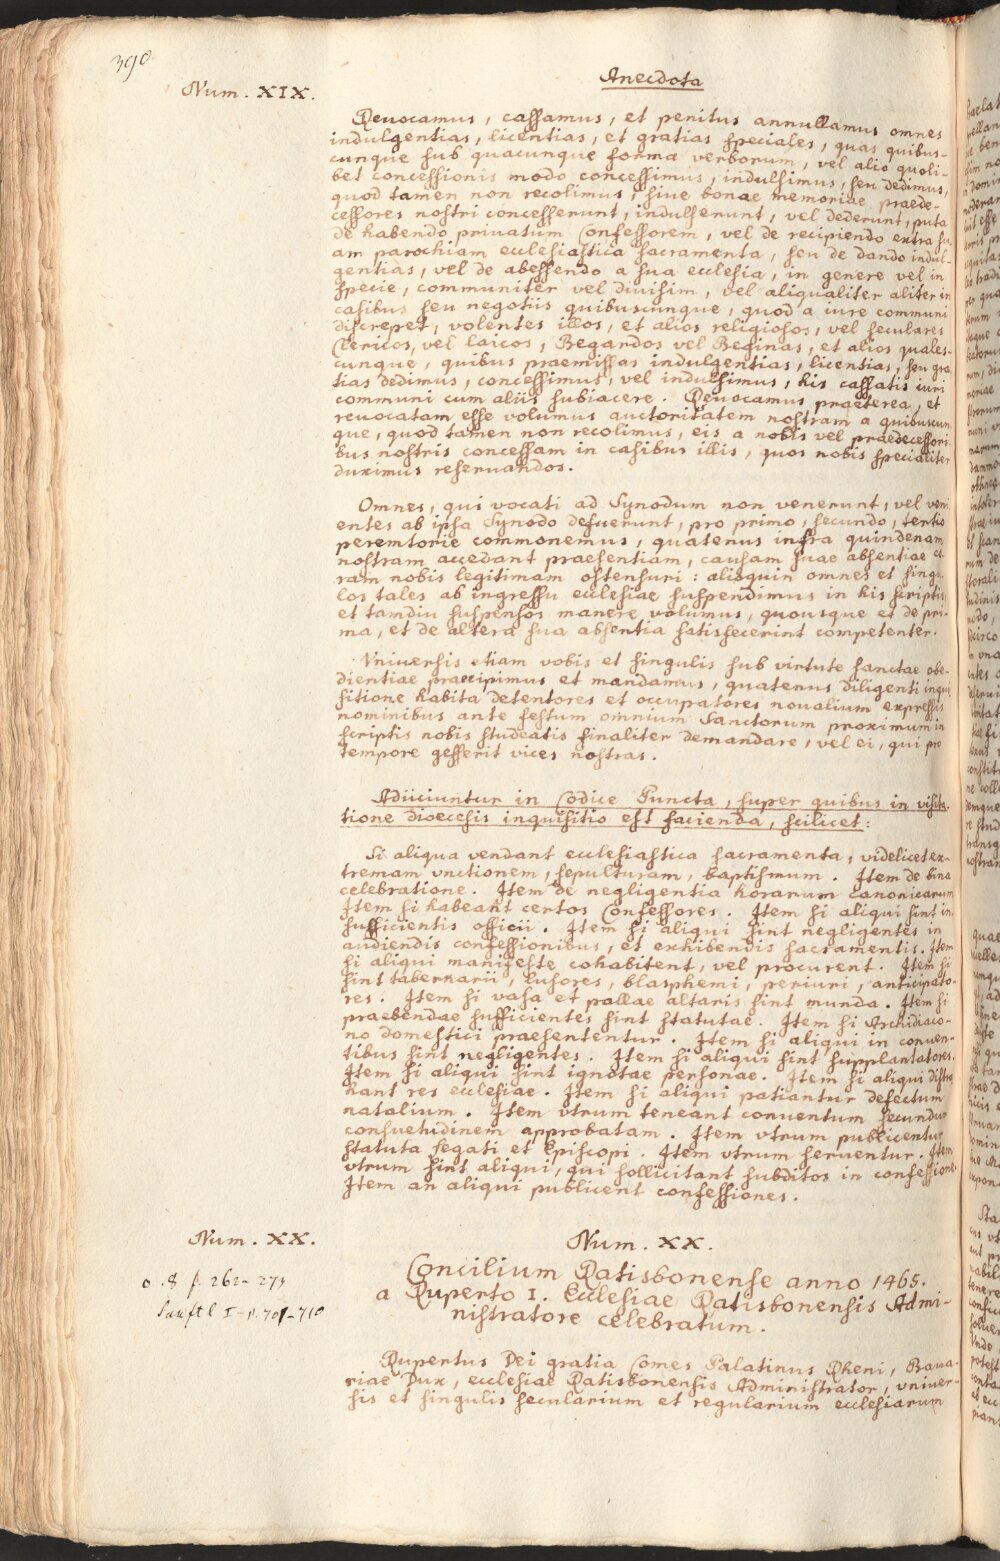 390
Num. XIX.
Anecdota
Reuocamus, cassamus, et penitus annullamus omnes
indulgentias, licentias, et gratias speciales, quas quibus-
cunque sub quacunque forma verborum, vel alio quoli-
bet concessionis modo concessimus, indulsimus, seu dedimus,
quod tamen non recolimus, siue bonae memoriae praede-
cessores nostri concesserunt, indulserunt, vel dederunt, puta
de habendo priuatum Confessorem, vel de recipiendo extra su-
am parochiam ecclesiastica sacramenta, seu de dando indul-
gentias, vel de abessendo a sua ecclesia, in genere vel in
specie, communiter vel diuisim, vel aliqualiter aliter in
casibus seu negotiis quibuscunque, quod a iure communi
discrepet, volentes illos, et alios religiosos, vel seculares
Clericos, vel laicos, Begardos vel Beginas, et alios quales-
cunque, quibus praemissas indulgentias, licentias, seu gra-
tias dedimus, concessimus, vel indulsimus, his cassatis iuri
communi cum aliis subiacere. Reuocamus praeterea, et
reuocatam esse volumus auctoritatem nostram a quibuscun
que, quod tamen non recolimus, eis a nobis vel praedecessori-
bus nostris concessam in casibus illis, quos nobis specialiter
duximus reseruandos.
Omnes, qui vocati ad Synodum non venerunt, vel veni
entes ab ipsa Synodo defuerunt, pro primo, secundo, tertio
peremtorie commonemus, quatenus infra quindenam
nostram accedant praesentiam, causam suae absentiae co
ram nobis legitimam ostensuri: alioquin omnes et singu
los tales ab ingressu ecclesiae suspendimus in his scriptis
et tamdiu suspensos manere volumus, quousque et de pri-
ma, et de altera sua absentia satisfecerint competenter.
Vniuersis etiam vobis et singulis sub virtute sanctae obe-
dientiae praecipimus et mandamus, quatenus diligenti inqui
sitione habita detentores et occupatores noualium expressis
nominibus ante festum omnium Sanctorum proximum in
scriptis nobis studeatis finaliter demandare, vel ei, qui pro
tempore gesserit vices nostras.
Adiiciuntur in Codice Puncta, super quibus in visita-
tione dioecesis inquisitio est facienda, scilicet:
Si aliqua vendant ecclesiastica sacramenta, videlicet ex-
tremam vnctionem, sepulturam, baptismum. Item de bina
celebratione. Item de negligentia horarum canonicarum
Item si habeant certos Confessores. Item si aliqui sint in
sufficientis officii. Item si aliqui sint negligentes in
audiendis confessionibus, et exhibendis sacramentis. Item
si aliqui manifeste cohabitent, vel procurent. Item si
sint tabernarii, lusores, blasphemi, periuri, anticipato-
res. Item si vasa et pallae altaris sint munda. Item si
praebendae sufficientes sint statutae. Item si Archidiaco-
no domestici praesententur. Item si aliqui in conuen-
tibus sint negligentes. Item si aliqui sint supplantatores.
Item si aliqui sint ignotae personae. Item si aliqui distra
hant res ecclesiae. Item si aliqui patiantur defectum
natalium. Item vtrum teneant conuentum secundum
consuetudinem approbatam. Item vtrum publicentur
statuta Legati et Episcopi. Item vtrum seruentur. Item
vtrum sint aliqui, qui sollicitant subditos in confessione.
Item an aliqui publicent confessiones.
Num. XX.
Num. XX.
Concilium Ratisbonense anno 1465.
a Ruperto I. Ecclesiae Ratisbonensis Admi-
nistratore celebratum.
Rupertus Dei gratia Comes Palatinus Rheni, Baua-
riae Dux, ecclesiae Ratisbonensis Administrator, vniuer-
sis et singulis secularium et regularium ecclesiarum